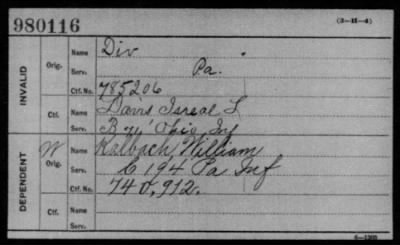 980116 (3-11-4)
INVALID
Orig. Name Div
Serv. Pa.
Ctf. No. 785206
Ctf. Name Davis Isreal L
Serv. B 71' Ohio Inf
DEPENDENT
W Orig. Name Kalbach, William
Serv. C 194 Pa Inf
Ctf. No. 740,912.
Ctf. Name
Serv.
6—1205